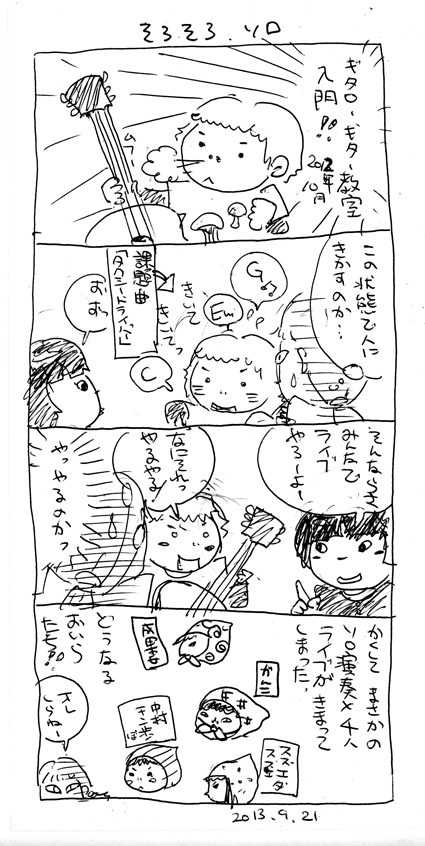 そろそろ、ソロ
ギタロー ギター教室
入門!!
2012年
10月
この状態で人に
きかすのか…
G
Em
C
きいて
きいてっ
課題曲
「タクシードライバー」
おお。
そんならさ
みんなで
ライブ
やろーよ!
なにそれっ
やるやる!
やってやるのかっ
かくて まさかの
ソロ演奏×4人
ライブがきまって
しまった。
どうなる
おいら
たち!!
オレ
しらねー
2013.9.21